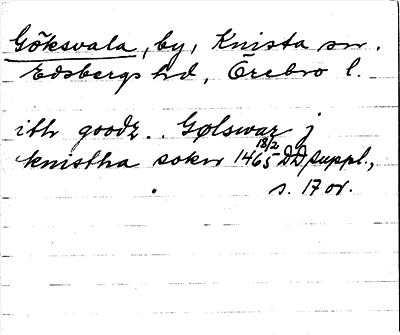 Göksvala, by, Knista sn.
Edsbergs hd, Örebro l.
ith goodz .. Gølswaz j
knistha sokn 18/2 1465 DD suppl.,
s. 17 or.